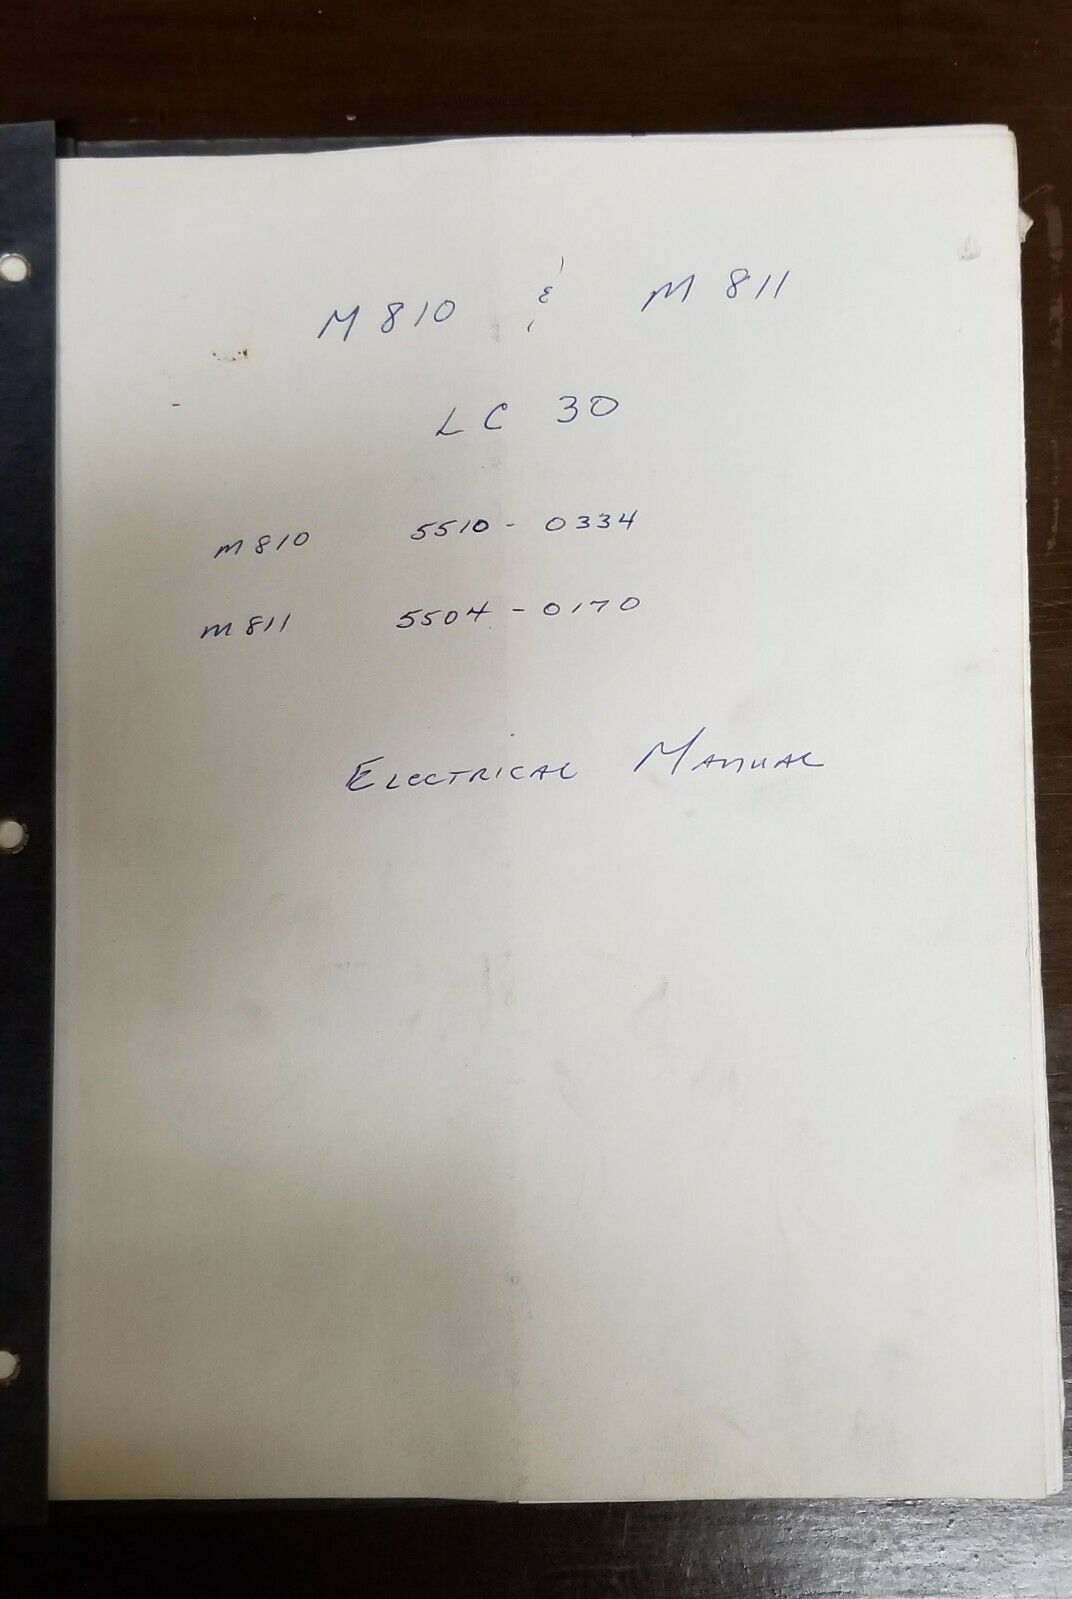 M 810 & M 811
LC 30
M 810 5510 - 0334
M 811 5504 - 0170
ELECTRICAL MANUAL